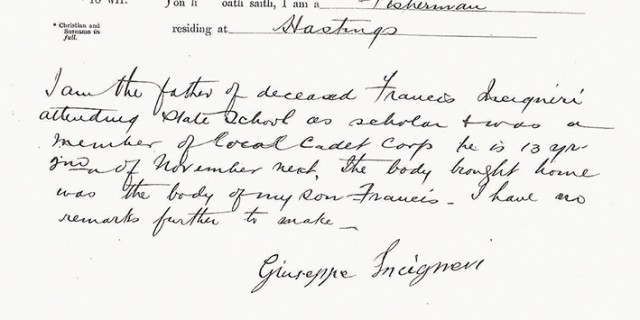 To wit.
on h oath saith, I am a Fisherman
* Christian and
Surname in
full.
residing at Hastings
I am the father of deceased Francis Incigneri
attending State School as scholar & was a
member of local Cadet Corp he is 13 yr
of November next, The body brought home
was the body of my son Francis - I have no
remarks further to make -
Giuseppe Incigneri